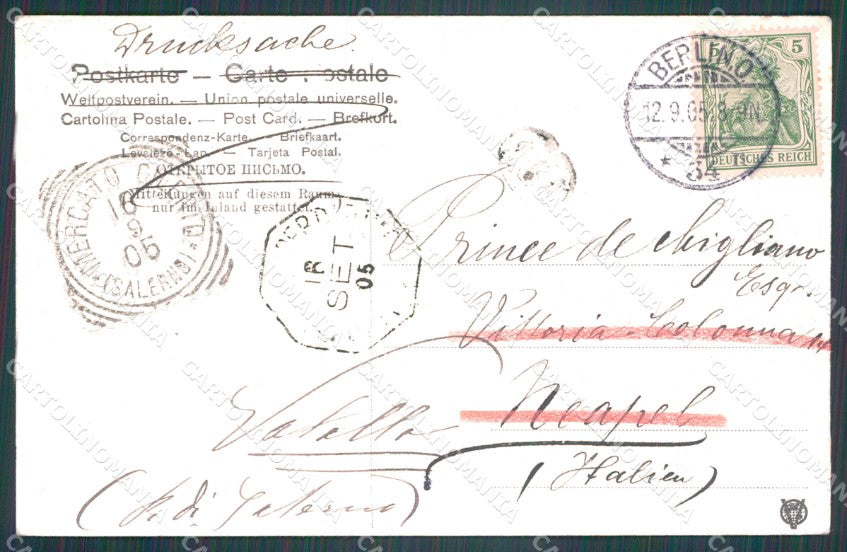 Drucksache.
Postkarte — Carte postale
Weltpostverein. — Union postale universelle.
Cartolina Postale. — Post Card. — Brefkort.
Correspondenz-Karte. — Briefkaart.
Levelező-Lap. — Tarjeta Postal.
ОТКРЫТОЕ ПИСЬМО.
Mitteilungen auf diesem Raum
nur im Inland gestattet.
BERLIN.O
12.9.05
* 34
5
DEUTSCHES REICH
MERCATO
(SALERNO)
16
9
05
16
SET
05
Prince de
Esqr.
Vittoria Colonna 14
Neapel
(Italien)
(P. di Salerno)
CARTOLINOMANIA